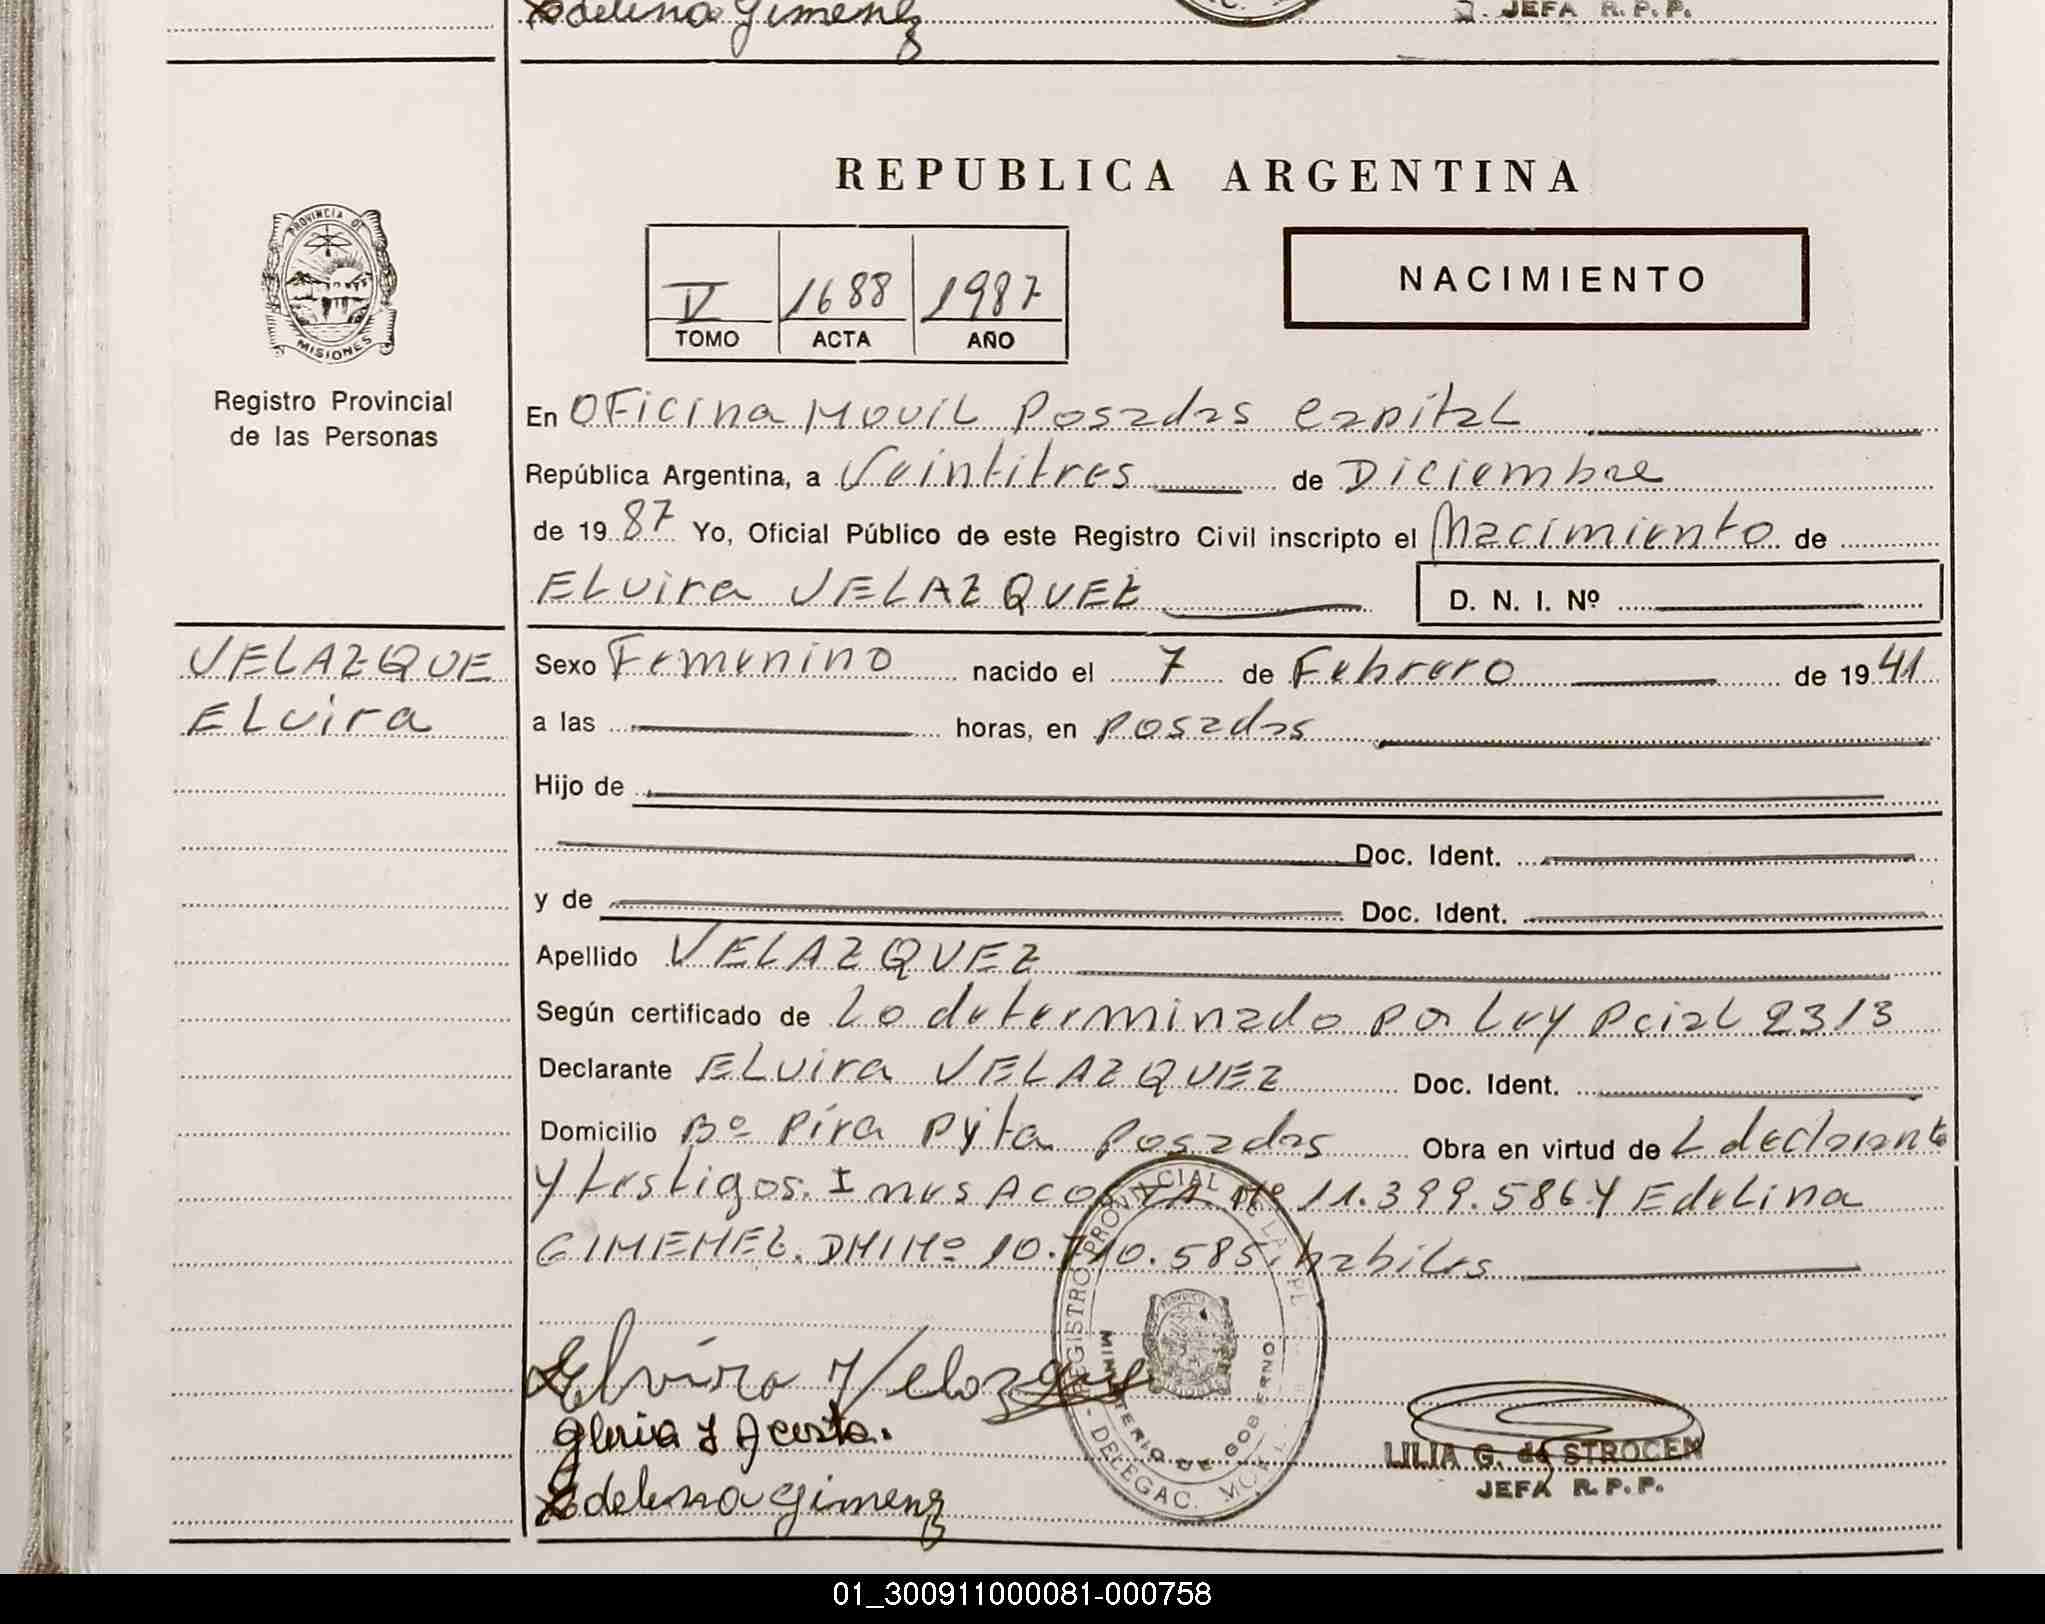 Edelina Gimenez
JEFA R.P.P.
REPUBLICA ARGENTINA
PROVINCIA DE
MISIONES
Registro Provincial
de las Personas
V 1688 1987
TOMO ACTA AÑO
NACIMIENTO
En OFicina MOVIL Posadas Capital
República Argentina, a Veintitres de Diciembre
de 19 87 Yo, Oficial Público de este Registro Civil inscripto el Nacimiento de
ELvira VELAZQUEZ D. N. I. Nº
VELAZQUE
ELvira
Sexo Femenino nacido el 7 de Febrero de 19 41
a las horas, en Posadas
Hijo de
Doc. Ident.
y de Doc. Ident.
Apellido VELAZQUEZ
Según certificado de Lo determinado por Ley Pcial 2313
Declarante ELvira VELAZQUEZ Doc. Ident.
Domicilio Bº Pira Pyta Posadas Obra en virtud de L declarante
y testigos. Ines ACOSTA Nº 11.399.586 Y Edelina
GIMENEZ. DNI Nº 10. .585. habiles
REGISTRO PROVINCIAL DE LA PE
MINISTERIO DE GOBIERNO
- DELEGAC. MOVIL
Elvira Velazquez
Gloria I Acosta.
Edelina Gimenez
LILIA G. de STROCEN
JEFA R.P.P.
01_300911000081-000758